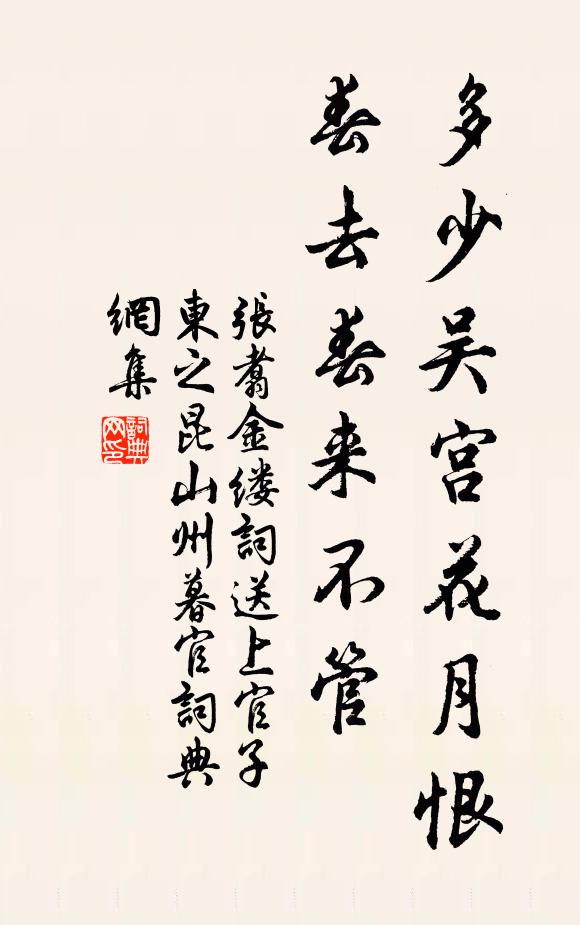 多少吴宫花月恨
春去春来不管
張翥金缕詞送上官子
東之昆山州暮官詞典
網集
詞典
网印